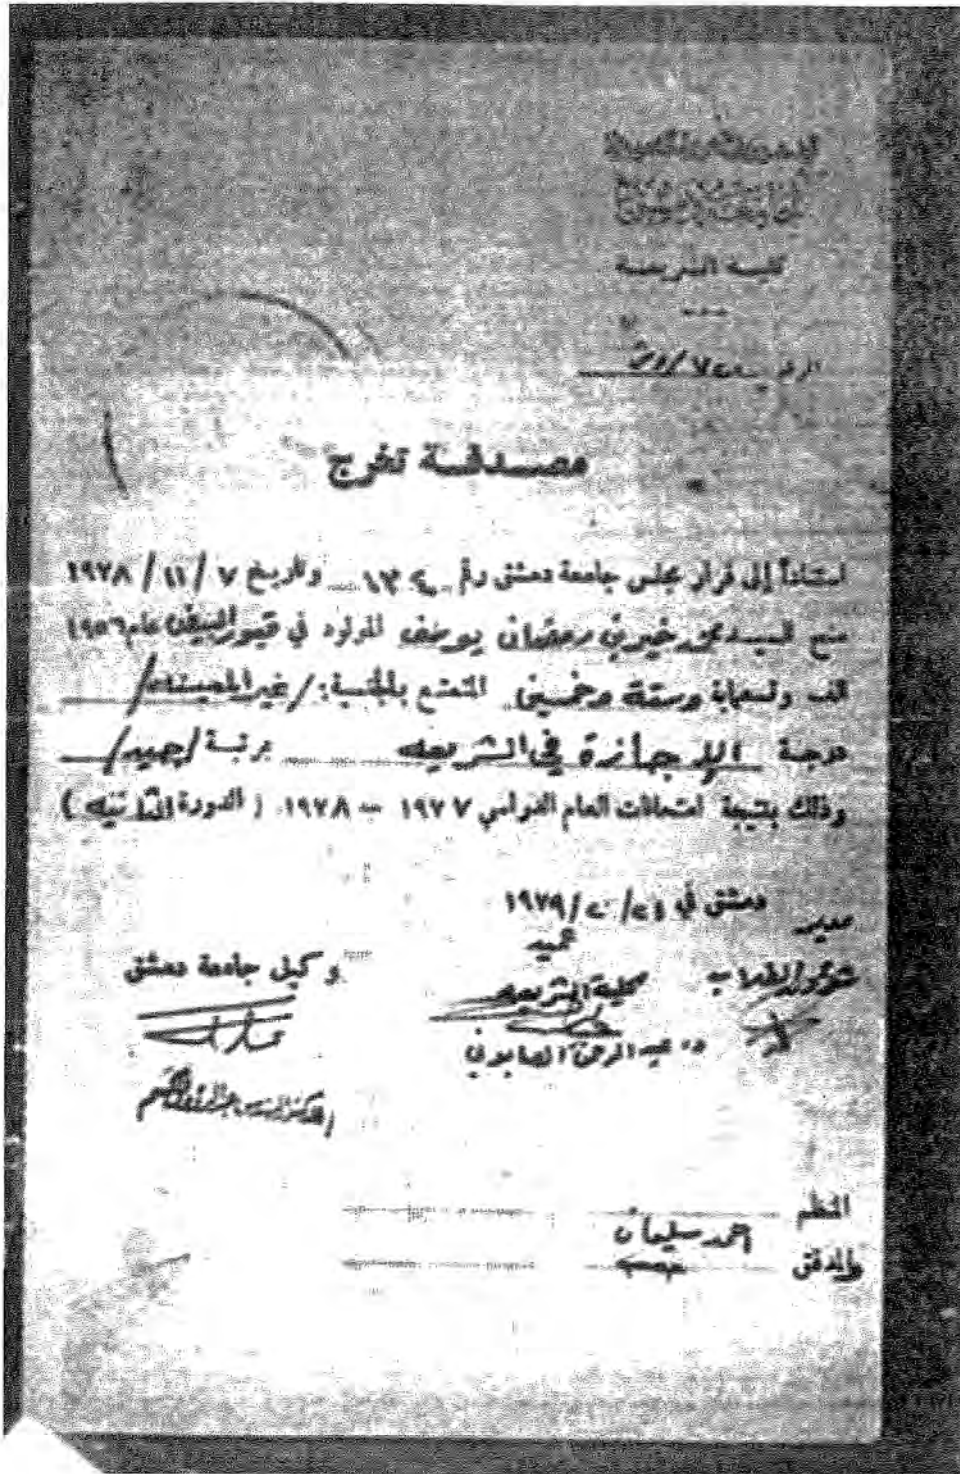 كلية الشريعة
الرقم
مصدقة تخرج
استناداً إلى قرار مجلس جامعة دمشق رقم ١٣٤ وتاريخ ٧ / ١١ / ١٩٧٨
منح السيد محمد خيربن رمضان يوسف المولود في قبور البيض عام ١٩٥٦
الف وتسعماية وستة وخمسين المتمتع بالجنسية: /غير المبينه/
درجة الإجازة في الشريعه برتبة /جيد/
وذلك بنتيجة امتحانات العام الدراسي ١٩٧٧ – ١٩٧٨ ( الدورة الثانيه )
دمشق في ١٩٧٩
مدير
شؤون الطلاب
عميد
كلية الشريعه
د. عبد الرحمن الصابوني
وكيل جامعة دمشق
المنظم
احمد سليمان
والمدقق